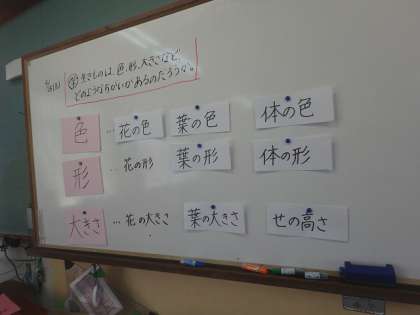 生きものは、色、形、大きさなど、
どのようなちがいがあるのだろうか。
色 … 花の色 葉の色 体の色
形 … 花の形 葉の形 体の形
大きさ … 花の大きさ 葉の大きさ せの高さ